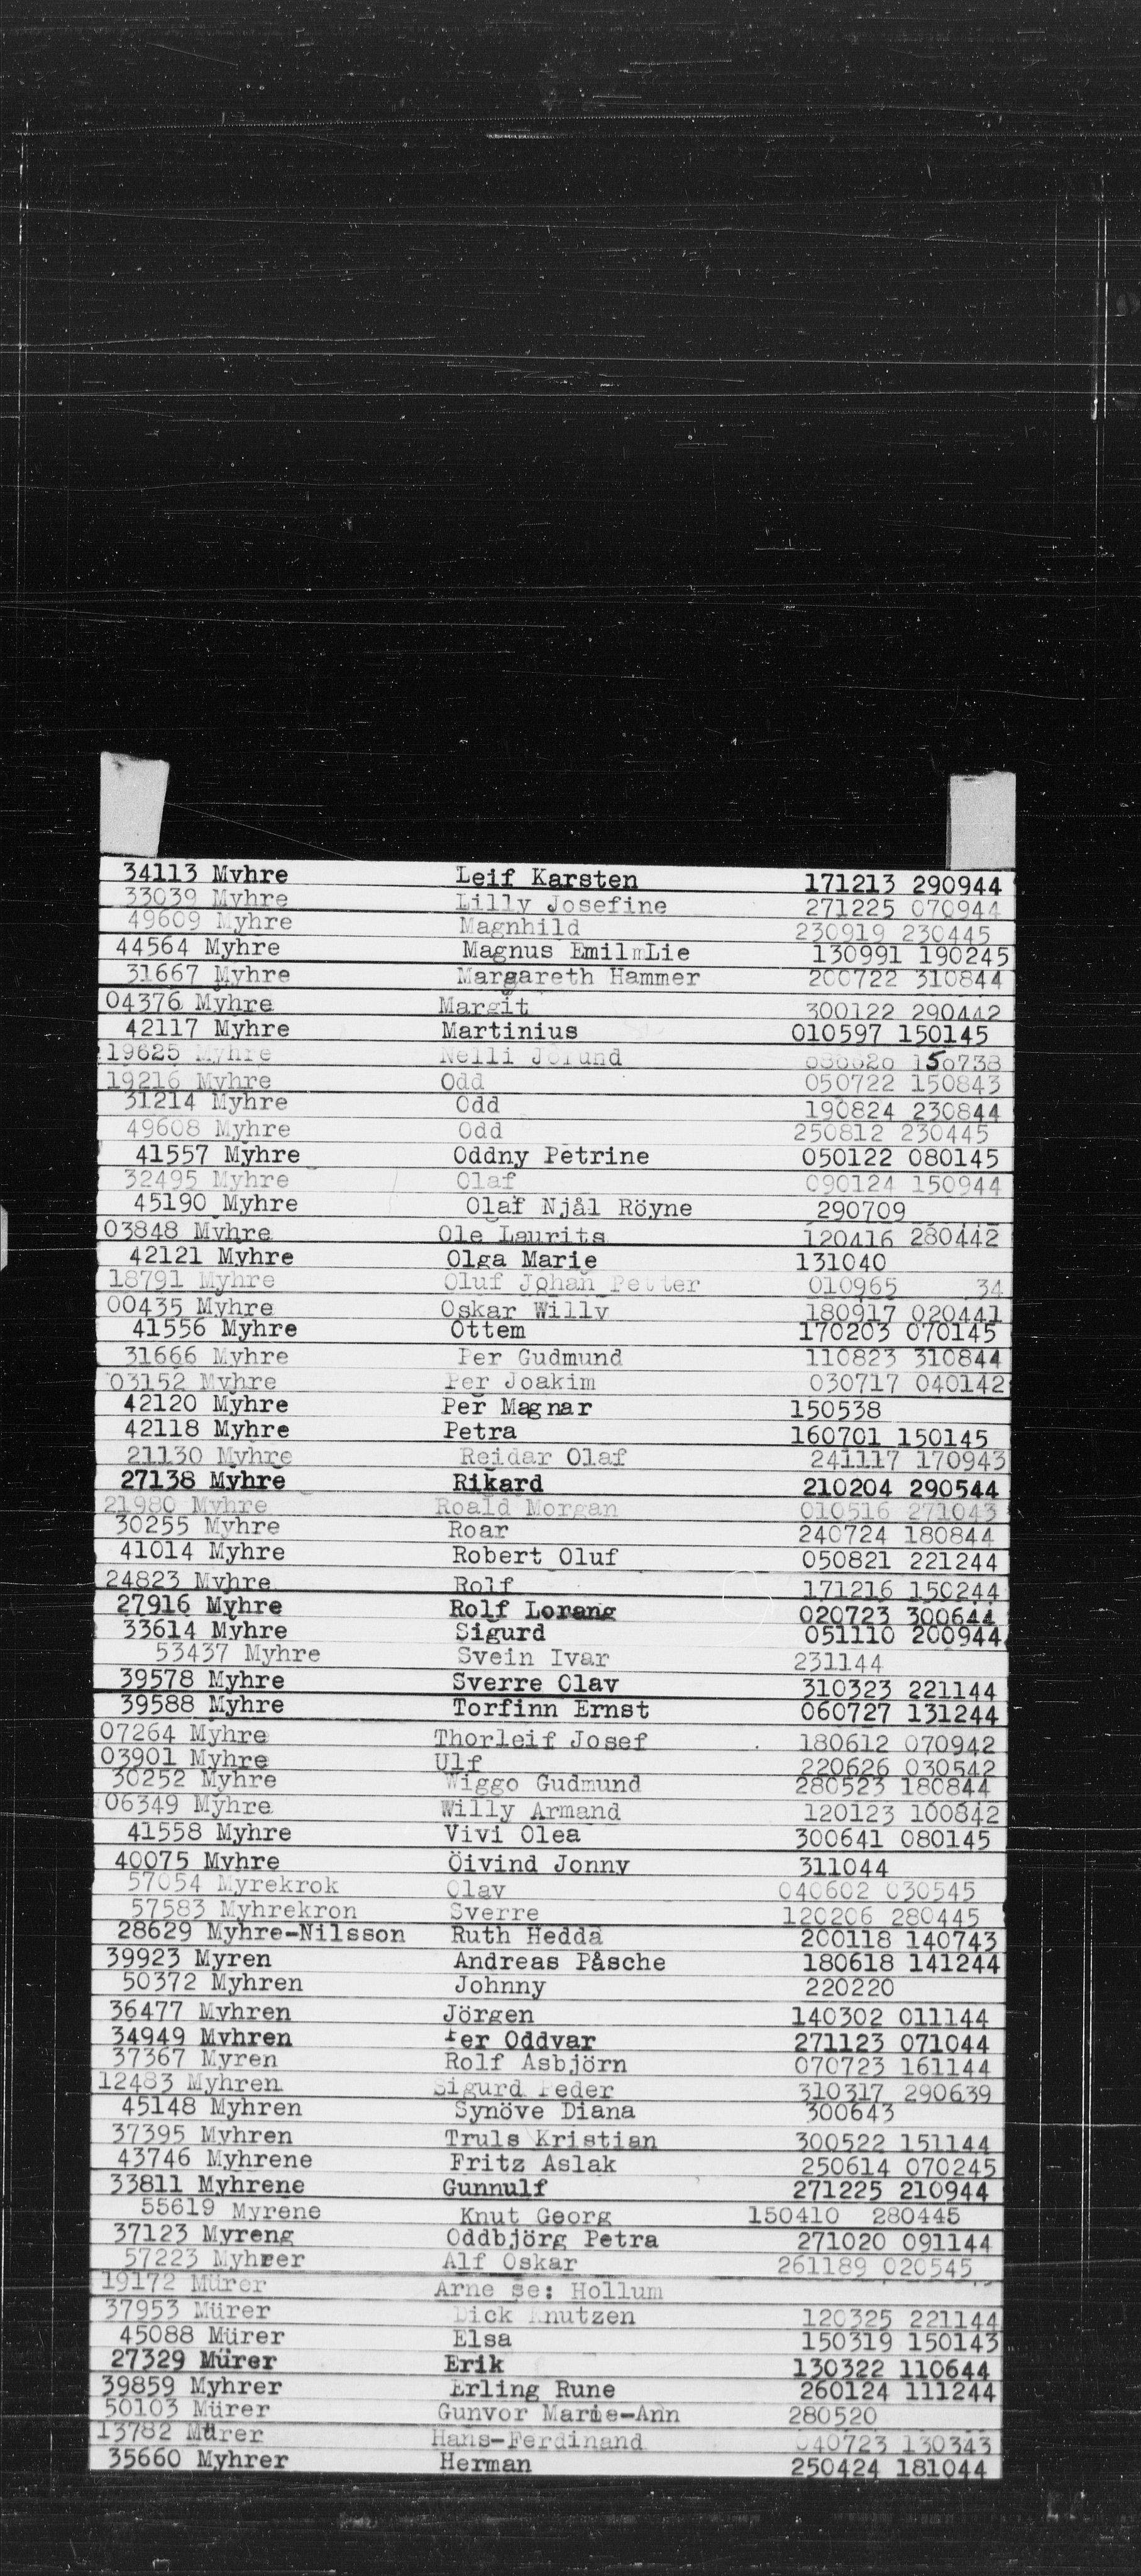 34113 Myhre Leif Karsten 171213 290944
33039 Myhre Lilly Josefine 271225 070944
49609 Myhre Magnhild 230919 230445
44564 Myhre Magnus Emil Lie 130991 190245
31667 Myhre Margareth Hammer 200722 310844
04376 Myhre Margit 300122 290442
42117 Myhre Martinius 010597 150145
19625 Myhre Nelli 150738
19216 Myhre Odd 050722 150843
31214 Myhre Odd 190824 230844
49608 Myhre Odd 250812 230445
41557 Myhre Oddny Petrine 050122 080145
32495 Myhre Olaf 090124 150944
45190 Myhre Olaf Njål Röyne 290709
03848 Myhre Ole Laurits 120416 280442
42121 Myhre Olga Marie 131040
18791 Myhre Oluf Johan Petter 010965 34
00435 Myhre Oskar Willy 180917 020441
41556 Myhre Ottem 170203 070145
31666 Myhre Per Gudmund 110823 310844
03152 Myhre Per Joakim 030717 040142
42120 Myhre Per Magnar 150538
42118 Myhre Petra 160701 150145
21130 Myhre Reidar Olaf 241117 170943
27138 Myhre Rikard 210204 290544
21980 Myhre Roald Morgan 010516 271043
30255 Myhre Roar 240724 180844
41014 Myhre Robert Oluf 050821 221244
24823 Myhre Rolf 171216 150244
27916 Myhre Rolf Lorang 020723 300644
33614 Myhre Sigurd 051110 200944
53437 Myhre Svein Ivar 231144
39578 Myhre Sverre Olav 310323 221144
39588 Myhre Torfinn Ernst 060727 131244
07264 Myhre Thorleif Josef 180612 070942
03901 Myhre Ulf 220626 030542
30252 Myhre Wiggo Gudmund 280523 180844
06349 Myhre Willy Armand 120123 100842
41558 Myhre Vivi Olea 300641 080145
40075 Myhre Öivind Jonny 311044
57054 Myrekrok Olav 040602 030545
57583 Myhrekron Sverre 120206 280445
28629 Myhre-Nilsson Ruth Hedda 200118 140743
39923 Myren Andreas Påsche 180618 141244
50372 Myhren Johnny 220220
36477 Myhren Jörgen 140302 011144
34949 Myhren Per Oddvar 271123 071044
37367 Myren Rolf Asbjörn 070723 161144
12483 Myhren Sigurd Peder 310317 290639
45148 Myhren Synöve Diana 300643
37395 Myhren Truls Kristian 300522 151144
43746 Myhrene Fritz Aslak 250614 070245
33811 Myhrene Gunnulf 271225 210944
55619 Myrene Knut Georg 150410 280445
37123 Myreng Oddbjörg Petra 271020 091144
57223 Myhrer Alf Oskar 261189 020545
19172 Mürer Arne se: Hollum
37953 Mürer Dick Knutzen 120325 221144
45088 Mürer Elsa 150319 150143
27329 Mürer Erik 130322 110644
39859 Myhrer Erling Rune 260124 111244
50103 Mürer Gunvor Marie-Ann 280520
13782 Mürer Hans-Ferdinand 040723 130343
35660 Myhrer Herman 250424 181044